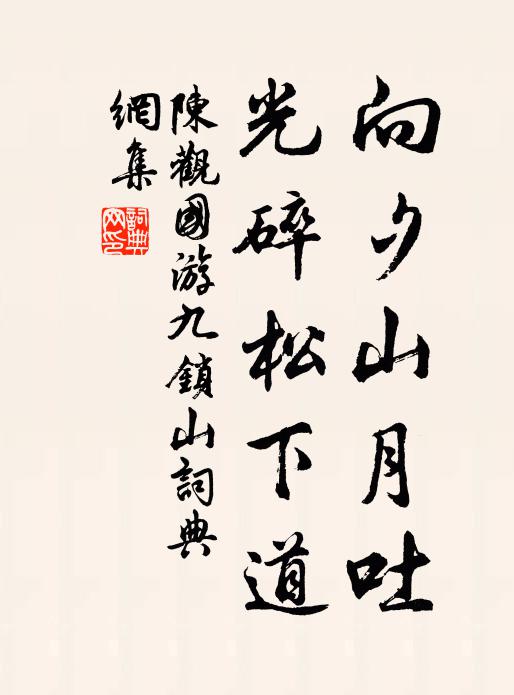 向夕山月吐
光碎松下道
陳觀國游九鎖山詞典
網集
詞典
网印